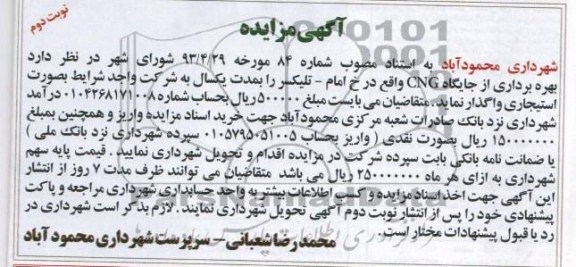 نوبت دوم
آگهی مزایده
شهرداری محمودآباد به استناد مصوب شماره ۸۴ مورخه ۹۳/۴/۲۹ شورای شهر در نظر دارد
بهره برداری از جایگاه CNG واقع در خ امام - تلیکسر را بمدت یکسال به شرکت واجد شرایط بصورت
استیجاری واگذار نماید. متقاضیان می بایست مبلغ ۵۰۰۰۰۰ ریال بحساب شماره ۰۱۰۴۲۶۸۱۷۱۰۰۸ درآمد
شهرداری نزد بانک صادرات شعبه مرکزی محمودآباد جهت خرید اسناد مزایده واریز و همچنین بمبلغ
۱۵۰۰۰۰۰۰۰ ریال بصورت نقدی ( واریز بحساب ۰۱۰۵۷۹۵۰۵۱۰۰۵ سپرده شهرداری نزد بانک ملی )
یا ضمانت نامه بانکی بابت سپرده شرکت در مزایده اقدام و تحویل شهرداری نمایند. قیمت پایه سهم
شهرداری به ازای هر ماه ۲۵۰۰۰۰۰۰۰ ریال می باشد متقاضیان می توانند ظرف مدت ۷ روز از انتشار
این آگهی جهت اخذ اسناد مزایده و کسب اطلاعات بیشتر به واحد حسابداری شهرداری مراجعه و پاکت
پیشنهادی خود را پس از انتشار نوبت دوم آگهی تحویل شهرداری نمایند. لازم بذکر است شهرداری در
رد یا قبول پیشنهادات مختار است.
محمد رضا شعبانی - سرپرست شهرداری محمود آباد